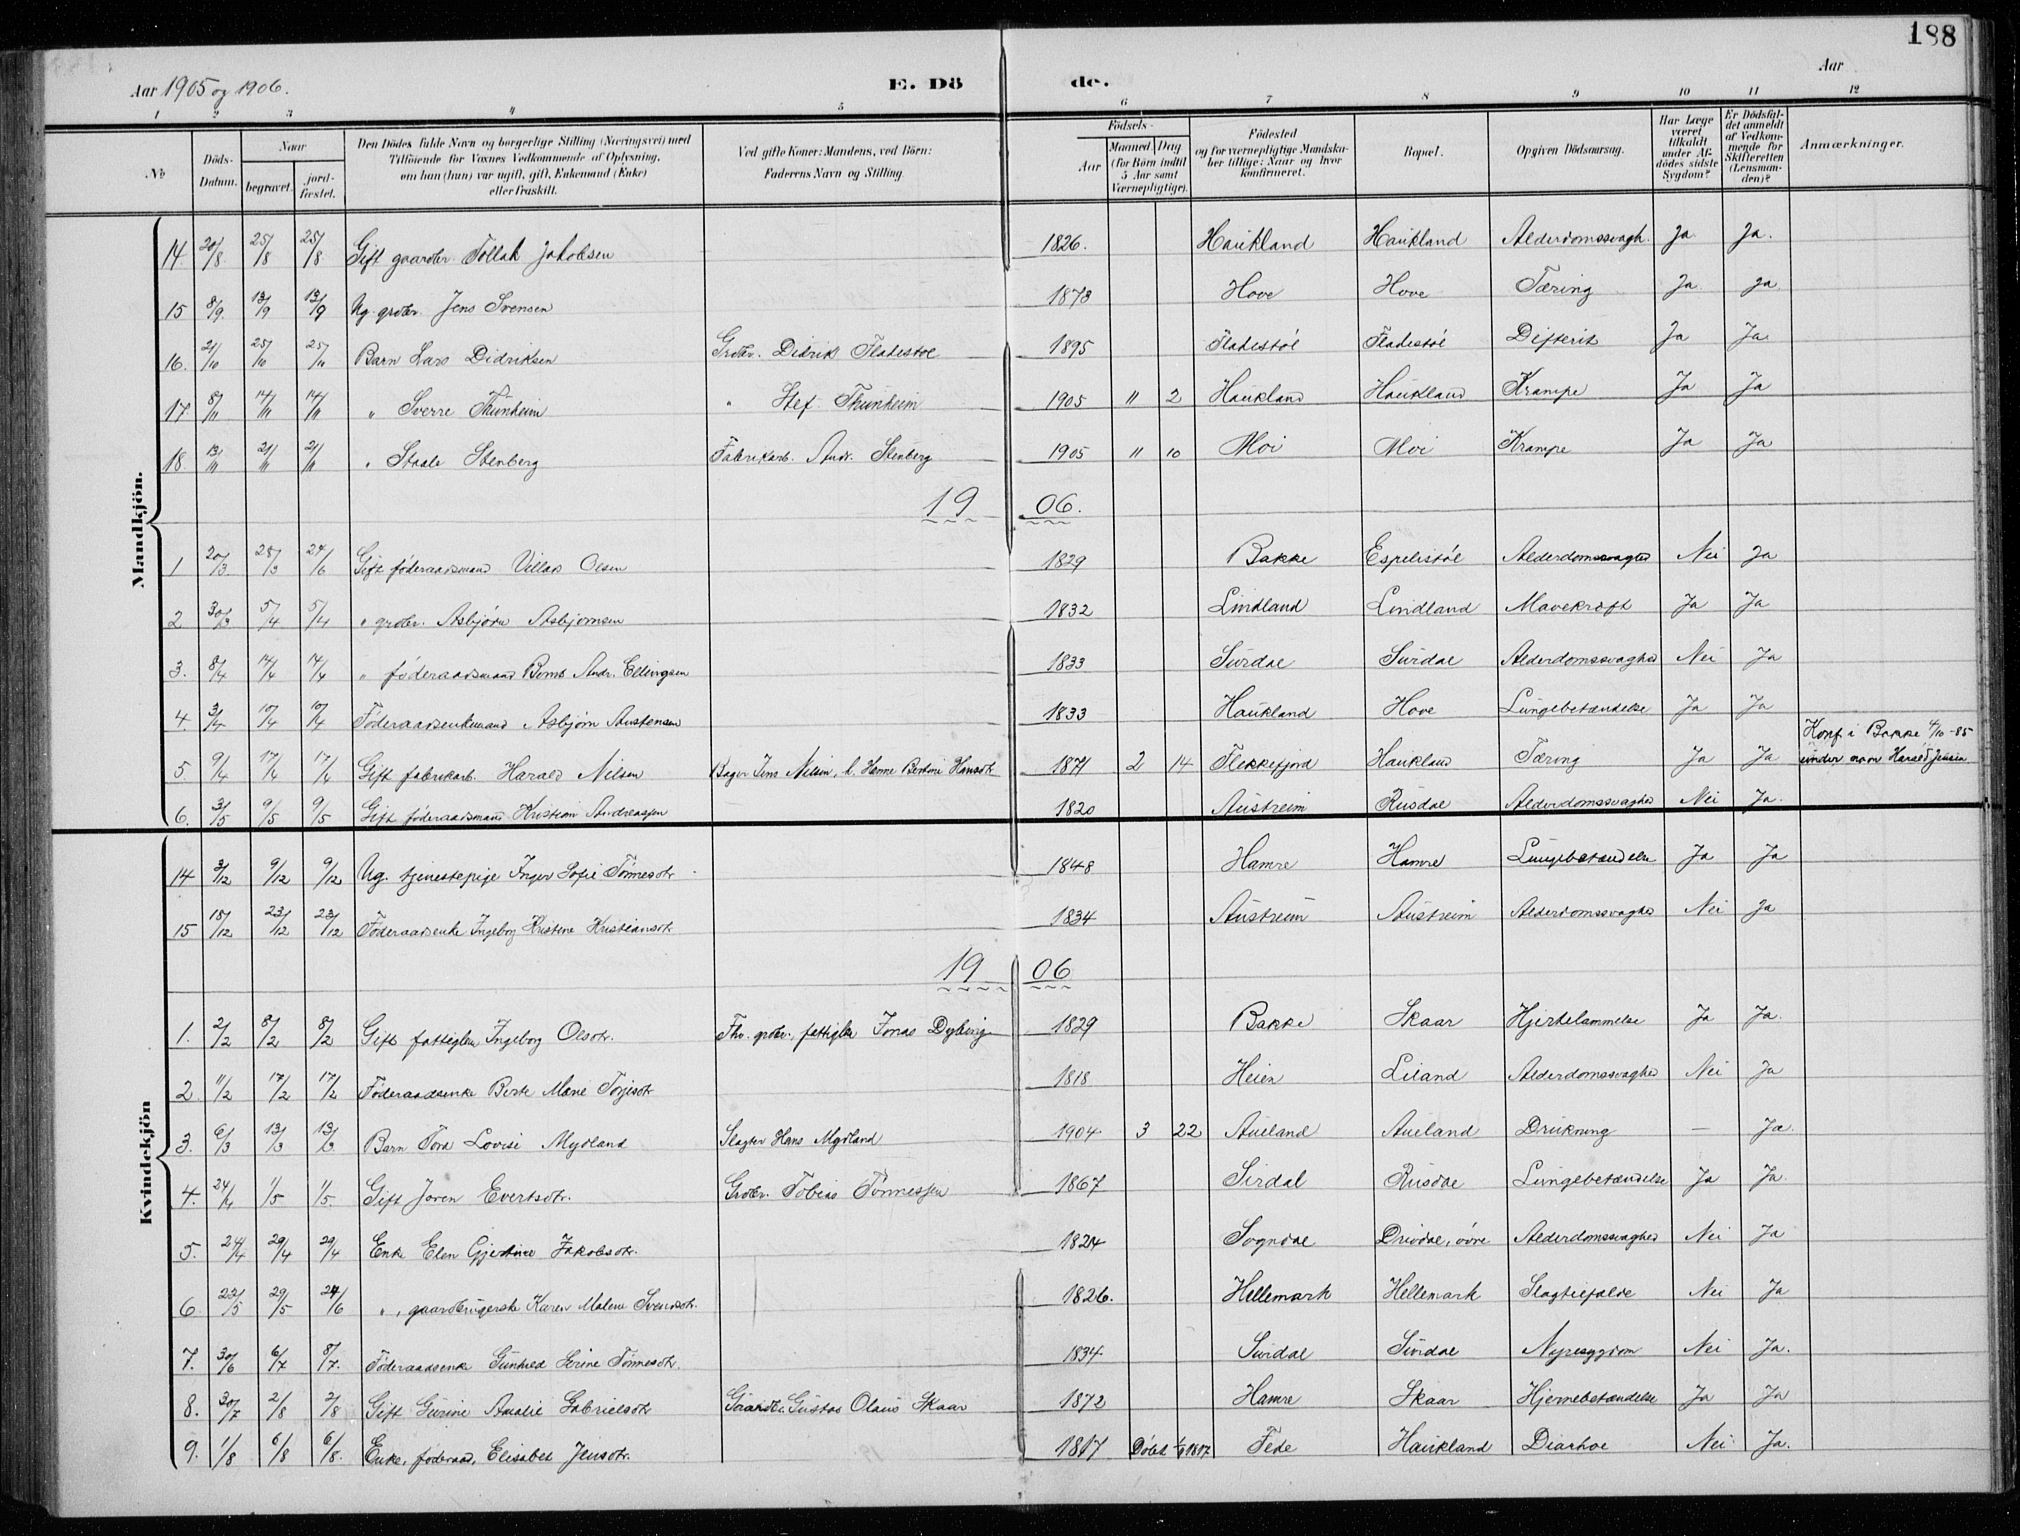 188
Aar 1905 og 1906.
E. Dö de.
Aar
1 2 3 4 5 6 7 8 9 10 11 12
№
Döds-Datum.
Naar
begravet.
jordfæstet.
Den Dödes fulde Navn og borgerlige Stilling (Næringsvei) med Tilföiende for Voxnes Vedkommende af Oplysning, om han (hun) var ugift, gift, Enkemand (Enke) eller fraskilt.
Ved gifte Koner: Mandens, ved Börn: Faderens Navn og Stilling.
Födsels-
Aar
Maaned Dag
(for Börn indtil 5 Aar samt Værnepligtige).
Födested
og for værnepligtige Mandskaber tillige: Naar og hvor konfirmeret.
Bopæl.
Opgiven Dödsaarsag.
Har Læge været tilkaldt under Afdödes sidste Sygdom?
Er Dödsfaldet anmeldt af Vedkommende for Skifteretten (Lensmanden)?
Anmærkninger.
Mandkjön.
14 20/8 25/8 25/8 Gift gaardbr. Tollak Jakobsen 1826. Haukland Haukland Alderdomssvagh. Ja Ja.
15 8/9. 13/9 13/9 Ug. grdbr. Jens Svensen 1873 Hove Hove Tæring Ja Ja
16. 21/10 25/10 25/10 Barn Lars Didriksen Grdbr. Didrik Fladestøl 1895 Fladestøl Fladestøl Difterit Ja Ja.
17. 8/11 14/11 14/11 " Sverre Thunheim " Stef. Thunheim 1905 " 2 Haukland Haukland Krampe Ja Ja
18. 13/11 21/11 21/11 " Staale Stenberg Fabrikarb. Andr. Stenberg 1905 " 10 Moi Moi Krampe Ja Ja
19 06.
1 20/3 28/3 24/6 Gift føderaadsmand Villas Olsen 1829 Bakke Espelistøl Alderdomssvaghed Nei Ja
2 30/3 5/4 5/4 " grdbr. Asbjørn Asbjørnsen 1832 Lindland Lindland Mavekræft Ja Ja
3. 8/4 14/4 14/4 " føderaadsmand Bernt Andr. Ellingsen 1833 Surdal Surdal Alderdomssvaghed Nei Ja
4. 3/4 10/4 10/4 Føderaadsenkemand Asbjørn Austensen 1833 Haukland Hove Lungebetændelse Ja Ja
5. 9/4 17/4 17/4 Gift fabrikarb. Harald Nilsen Bager Jens Nilsen, h. Hanne Bertine Hansdtr 1871 2 14 Flekkefjord Haukland Tæring Ja Ja Konf. i Bakke 4/10-85 under navn Harald Jensen
6. 3/5 9/5 9/5 Gift føderaadsmand Kristian Andreassen 1820 Austreim Rusdal Alderdomssvaghed Nei Ja.
Kvindekjön
14 3/12 9/12 9/12 Ug. tjenestepige Inger Sofie Tønnesdtr. 1848 Hamre Hamre Lungebetændelse Ja Ja
15 18/12 23/12 23/12 Føderaadsenke Ingeborg Kristine Kristiansdtr. 1834 Austreim Austreim Alderdomssvaghed Nei Ja
19 06
1. 2/2 8/2 8/2 Gift fattiglem Ingeborg Olsdtr. Fhv. grdbr., fattiglem Jonas Dybing 1829 Bakke Skaar Hjertelammelse Ja Ja.
2. 11/2 17/2 17/2 Føderaadsenke Berte Marie Torjesdtr 1818 Heien Liland Alderdomssvaghed Nei Ja
3. 6/3 13/3 13/3 Barn Tora Lovise Mydland Slagter Hans Mydland 1904 3 22 Aueland Aueland Drukning — Ja.
4. 24/4 1/5 1/5. Gift Joren Evertsdtr. Grdbr. Tobias Tønnessen 1867 Sirdal Rusdal Lungebetændelse Ja Ja.
5. 24/4 29/4 29/4 Enke Elen Gjertine Jakobsdtr. 1824 Sogndal Drivdal, øvre Alderdomssvaghed Nei Ja
6 22/5 29/5 24/6 ", gaardbrugerske Karen Malene Svendsdtr. 1826. Hellemark Hellemark Slagtilfælde Nei Ja
7. 30/6 6/7 8/7. Føderaadsenke Gunhild Serine Tønnesdtr. 1834 Surdal Surdal Nyresygdom Nei Ja.
8. 30/7 2/8 2/8 Gift Gurine Amalie Gabrielsdtr Gaardbr. Gustav Olaus Skaar 1872 Hamre Skaar Hjernebetændelse Ja Ja
9. 1/8 6/8 6/8. Enke, føderaad, Elisabet Jensdtr. 1817 Døbt 1/8 1817 Fede Haukland Diarhoe Nei Ja.